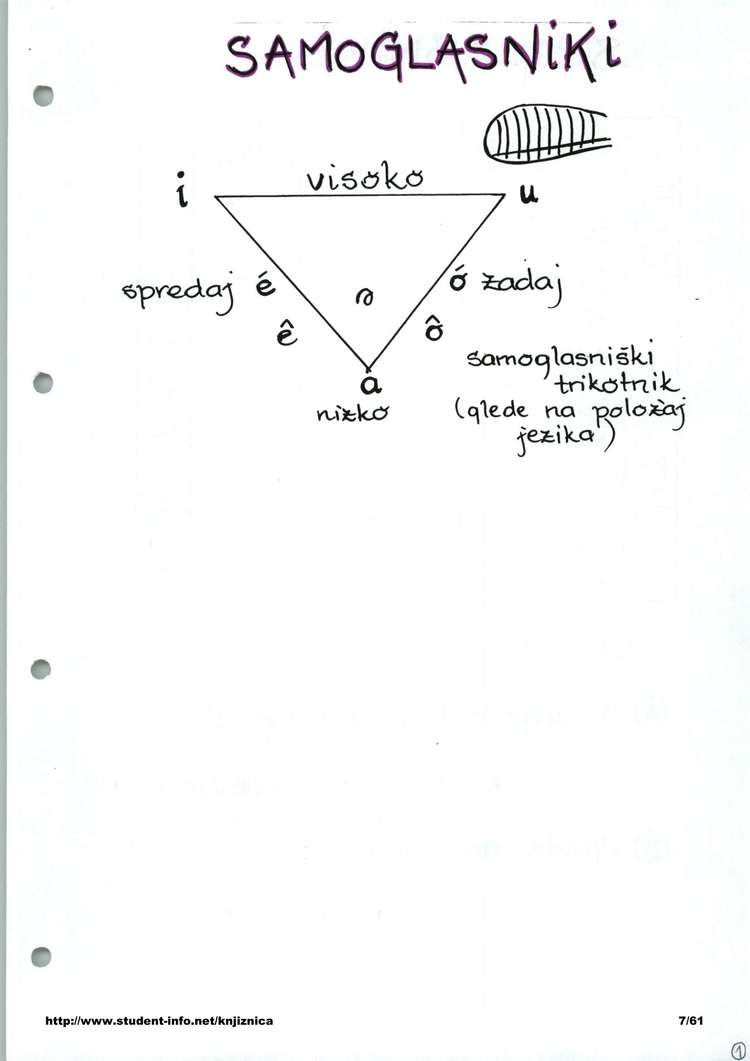 SAMOGLASNIKI
visoko
i
u
spredaj é
ə
ó zadaj
ê
ô
a
nizko
samoglasniški
trikotnik
(glede na položaj
jezika)
http://www.student-info.net/knjiznica
7/61
1